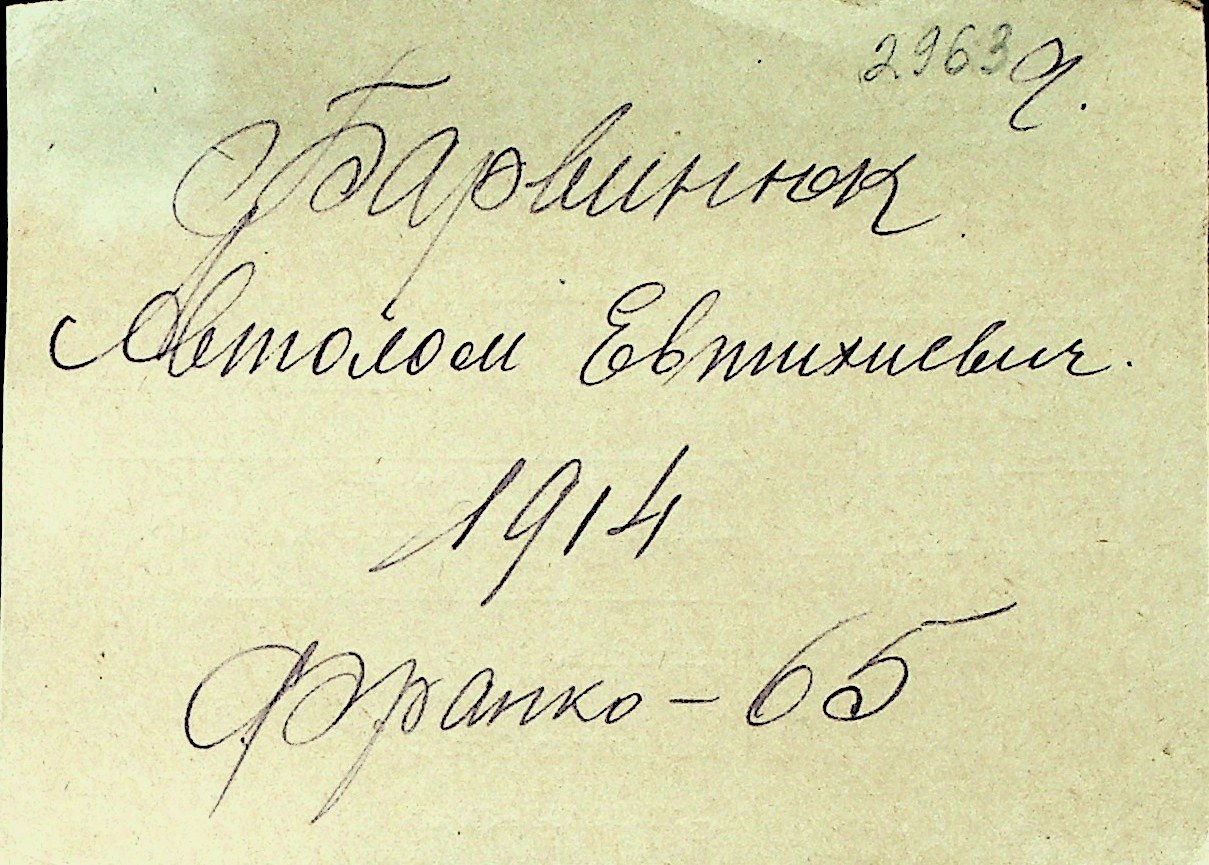 2963 Ч.
Барвинюк
Автолом Евтихиевич.
1914
Франко - 65